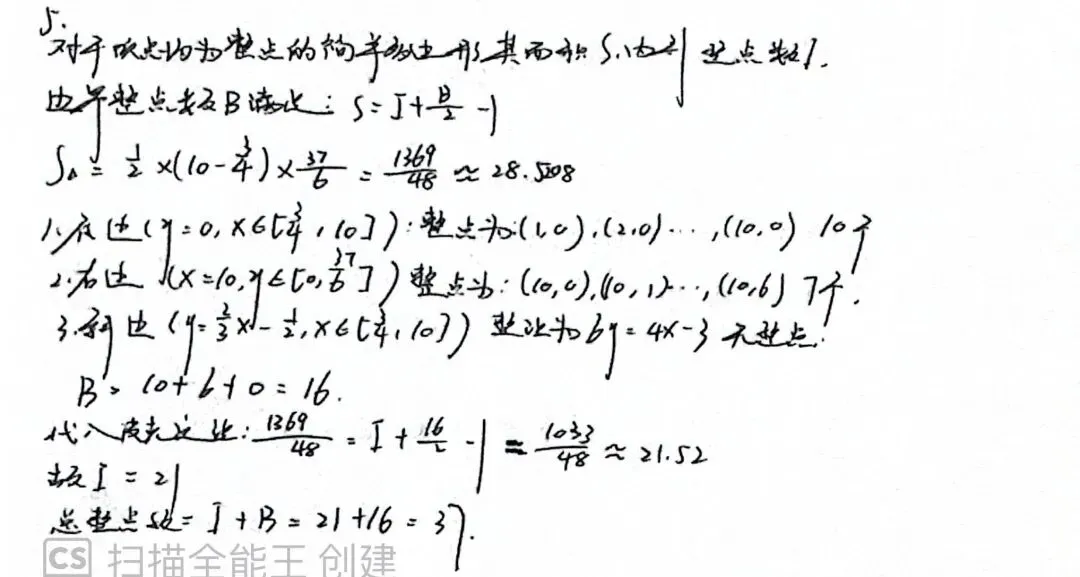 5.
对于顶点均为整点的简单多边形其面积S,内部整点数I,
边界整点数B满足: S=I+B/2-1
S△=1/2×(10-3/4)×37/6=1369/48≈28.5208
1.底边(y=0,x∈[3/4,10]):整点为:(1,0),(2,0)...,(10,0) 10个
2.右边(x=10,y∈[0,37/6])整点为:(10,0),(10,1)...,(10,6) 7个.
3.斜边(y=2/3x-1/2,x∈[3/4,10])整理为6y=4x-3无整点.
B=10+6+0=16.
代入皮克定理:1369/48=I+16/2-1=1033/48≈21.52
故I=21
总整点数=I+B=21+16=37.
CS 扫描全能王 创建